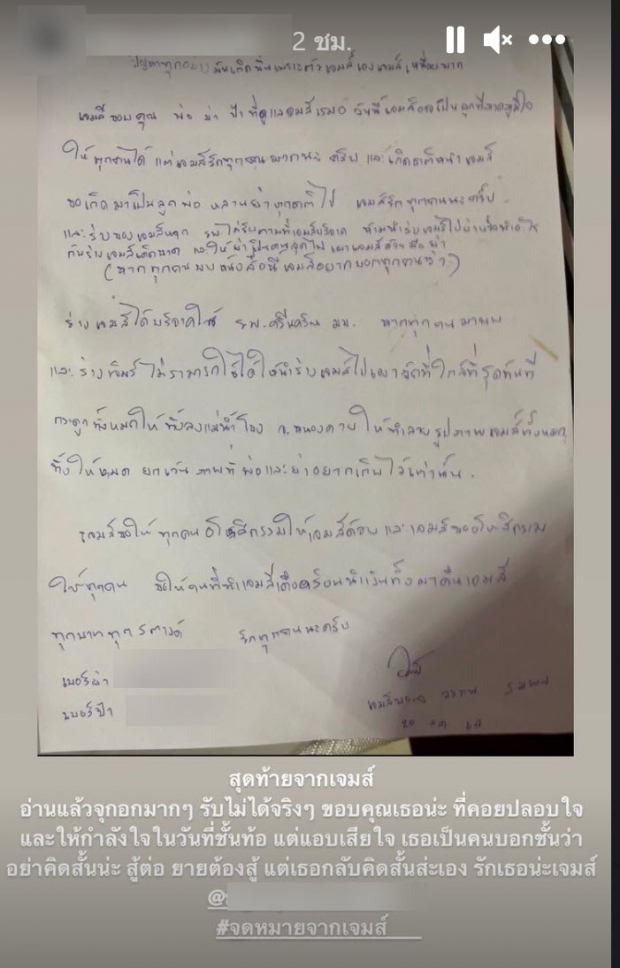 2 ชม.
ปัญหาทุกอย่าง มันเกิดขึ้นเพราะตัวเจมส์เอง เจมส์เหนื่อยมาก
เจมส์ขอบคุณ พ่อ ย่า ป้า ที่ดูแลเจมส์เสมอ วันนี้เจมส์
ให้ทุกคนได้ แต่เจมส์รักทุกคนมากนะครับ และ
ขอเกิดมาเป็นลูกพ่อ หลานย่าทุกชาติไป เจมส์รักทุกคนนะครับ
และร่างของเจมส์
(หากทุกคนพบหนังสือนี้เจมส์อยากบอกทุกคนว่า)
ร่างเจมส์ได้บริจาคให้ รพ.ศรีนครินทร์ มข. หากทุกคนมาพบ
และร่างเจมส์ไม่สามารถใช้ได้ให้นำร่างเจมส์ไปเผาวัดที่ใกล้ที่สุดทันที
กระดูกทั้งหมดให้ทิ้งลงแม่น้ำโขง จ.หนองคาย ให้ทำลายรูปภาพเจมส์ทั้งหมด
ทิ้งให้หมด ยกเว้นภาพที่พ่อและย่าอยากเก็บไว้เท่านั้น.
เจมส์ขอให้ทุกคนอโหสิกรรมให้เจมส์ด้วย และเจมส์ขออโหสิกรรม
ให้ทุกคน ขอให้คนที่ทำเจมส์เดือดร้อนนำเงินทั้งมาคืนเจมส์
ทุกบาททุกสตางค์ รักทุกคนนะครับ
เบอร์ย่า
เบอร์ป้า
สุดท้ายจากเจมส์
อ่านแล้วจุกอกมากๆ รับไม่ได้จริงๆ ขอบคุณเธอน่ะ ที่คอยปลอบใจ
และให้กำลังใจในวันที่ชั้นท้อ แต่แอบเสียใจ เธอเป็นคนบอกชั้นว่า
อย่าคิดสั้นน่ะ สู้ต่อ ยายต้องสู้ แต่เธอกลับคิดสั้นส่ะเอง รักเธอน่ะเจมส์
@
#จดหมายจากเจมส์